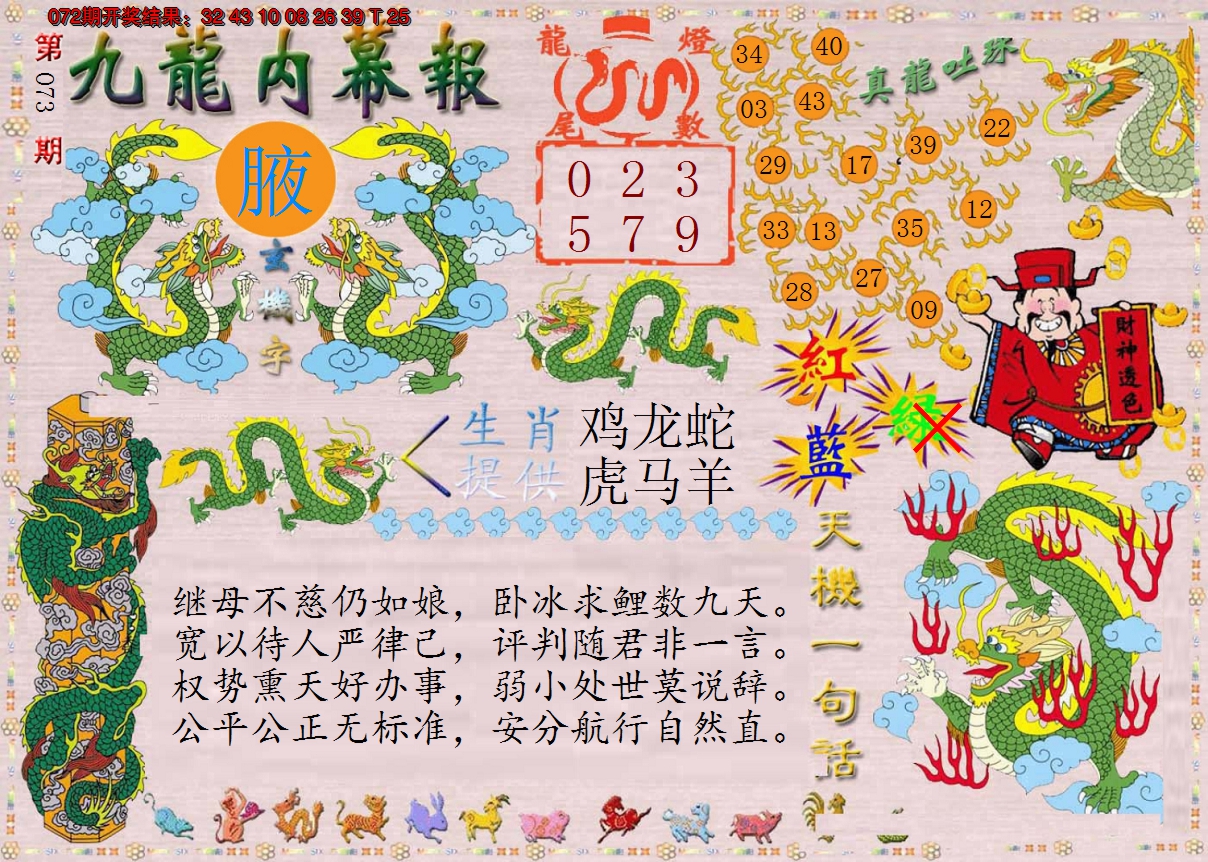 072期开奖结果：32 43 10 08 26 39 T 25
第073期
九龍内幕報
龍燈尾數
0 2 3
5 7 9
真龍吐珠
34
40
03
43
39
22
29
17
33
13
35
12
28
27
09
腋
玄機字
財神透色
紅
綠
藍
生肖提供
鸡龙蛇
虎马羊
天機一句話
继母不慈仍如娘，卧冰求鲤数九天。
宽以待人严律己，评判随君非一言。
权势熏天好办事，弱小处世莫说辞。
公平公正无标准，安分航行自然直。